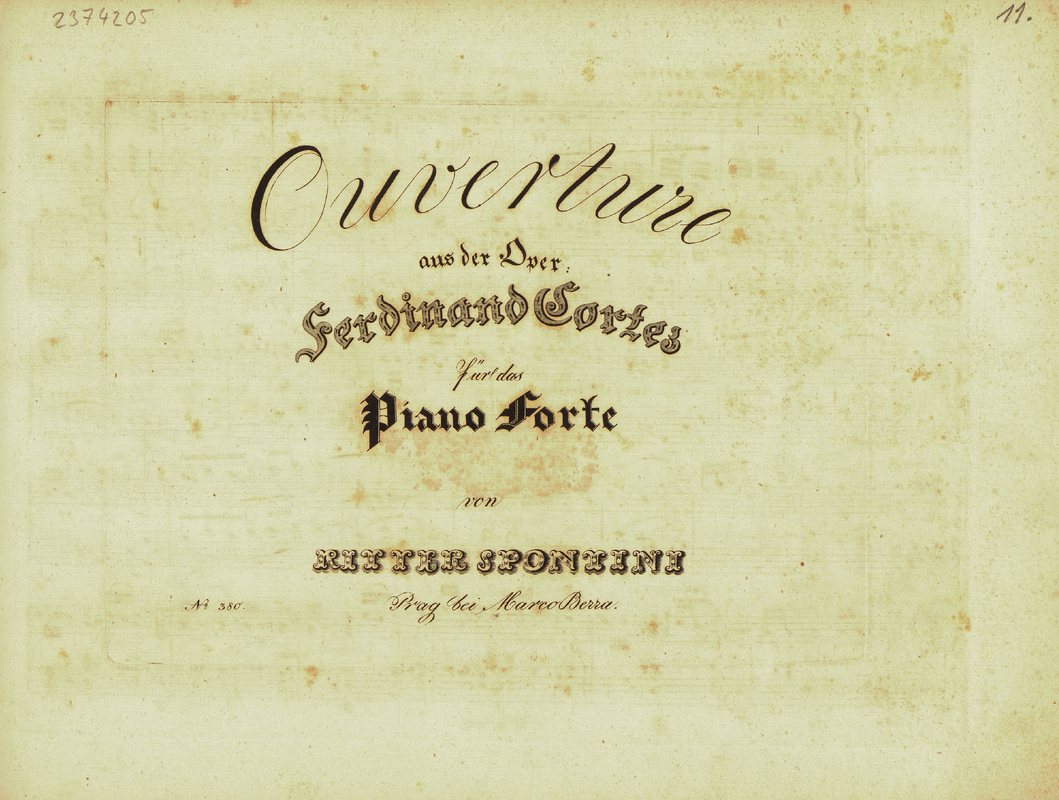 2374205
11.
Ouverture
aus der Oper:
Ferdinand Cortes
für das
Piano Forte
von
RITTER SPONTINI
Nº 380.
Prag bei Marco Berra.